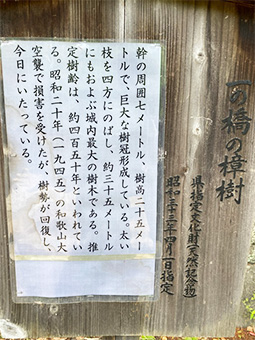 一の橋の樟樹
県指定文化財(天然記念物)
昭和三十三年四月一日指定
幹の周囲七メートル、樹高二十五メー
トルで、巨大な樹冠形成している。太い
枝を四方にのばし、約三十五メートル
にもおよぶ城内最大の樹木である。推
定樹齢は、約四百五十年といわれてい
る。昭和二十年(一九四五)の和歌山大
空襲で損害を受けたが、樹勢が回復し、
今日にいたっている。